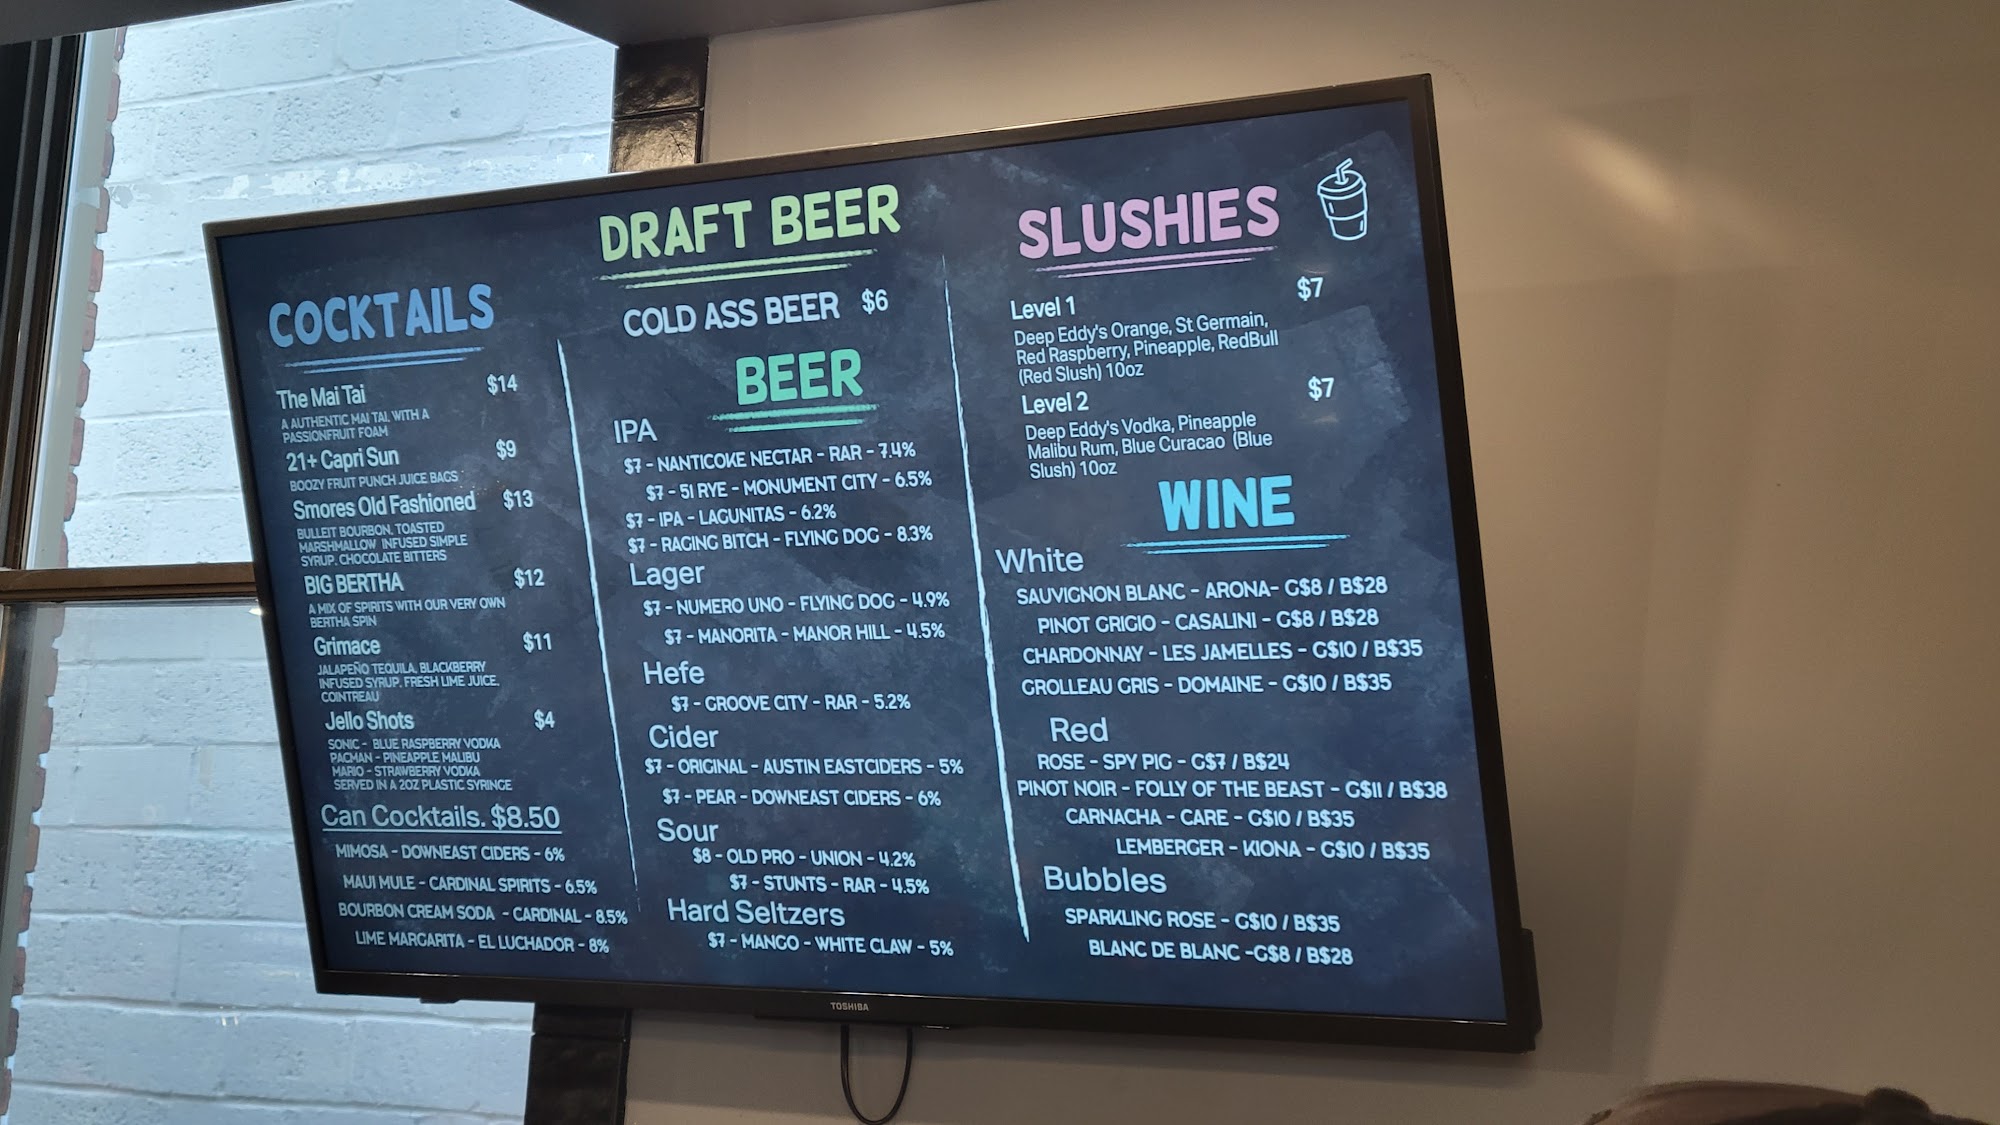 COCKTAILS
The Mai Tai $14
A AUTHENTIC MAI TAI, WITH A
PASSIONFRUIT FOAM
21+ Capri Sun $9
BOOZY FRUIT PUNCH JUICE BAGS
Smores Old Fashioned $13
BULLEIT BOURBON, TOASTED
MARSHMALLOW INFUSED SIMPLE
SYRUP, CHOCOLATE BITTERS
BIG BERTHA $12
A MIX OF SPIRITS WITH OUR VERY OWN
BERTHA SPIN
Grimace $11
JALAPEÑO TEQUILA, BLACKBERRY
INFUSED SYRUP, FRESH LIME JUICE,
COINTREAU
Jello Shots $4
SONIC - BLUE RASPBERRY VODKA
PACMAN - PINEAPPLE MALIBU
MARIO - STRAWBERRY VODKA
SERVED IN A 2OZ PLASTIC SYRINGE
Can Cocktails. $8.50
MIMOSA - DOWNEAST CIDERS - 6%
MAUI MULE - CARDINAL SPIRITS - 6.5%
BOURBON CREAM SODA - CARDINAL - 8.5%
LIME MARGARITA - EL LUCHADOR - 8%
DRAFT BEER
COLD ASS BEER $6
BEER
IPA
$7 - NANTICOKE NECTAR - RAR - 7.4%
$7 - 51 RYE - MONUMENT CITY - 6.5%
$7 - IPA - LAGUNITAS - 6.2%
$7 - RAGING BITCH - FLYING DOG - 8.3%
Lager
$7 - NUMERO UNO - FLYING DOG - 4.9%
$7 - MANORITA - MANOR HILL - 4.5%
Hefe
$7 - GROOVE CITY - RAR - 5.2%
Cider
$7 - ORIGINAL - AUSTIN EASTCIDERS - 5%
$7 - PEAR - DOWNEAST CIDERS - 6%
Sour
$8 - OLD PRO - UNION - 4.2%
$7 - STUNTS - RAR - 4.5%
Hard Seltzers
$7 - MANGO - WHITE CLAW - 5%
SLUSHIES
Level 1 $7
Deep Eddy's Orange, St Germain,
Red Raspberry, Pineapple, RedBull
(Red Slush) 10oz
Level 2 $7
Deep Eddy's Vodka, Pineapple
Malibu Rum, Blue Curacao (Blue
Slush) 10oz
WINE
White
SAUVIGNON BLANC - ARONA- G$8 / B$28
PINOT GRIGIO - CASALINI - G$8 / B$28
CHARDONNAY - LES JAMELLES - G$10 / B$35
GROLLEAU GRIS - DOMAINE - G$10 / B$35
Red
ROSE - SPY PIG - G$7 / B$24
PINOT NOIR - FOLLY OF THE BEAST - G$11 / B$38
CARNACHA - CARE - G$10 / B$35
LEMBERGER - KIONA - G$10 / B$35
Bubbles
SPARKLING ROSE - G$10 / B$35
BLANC DE BLANC -G$8 / B$28
TOSHIBA